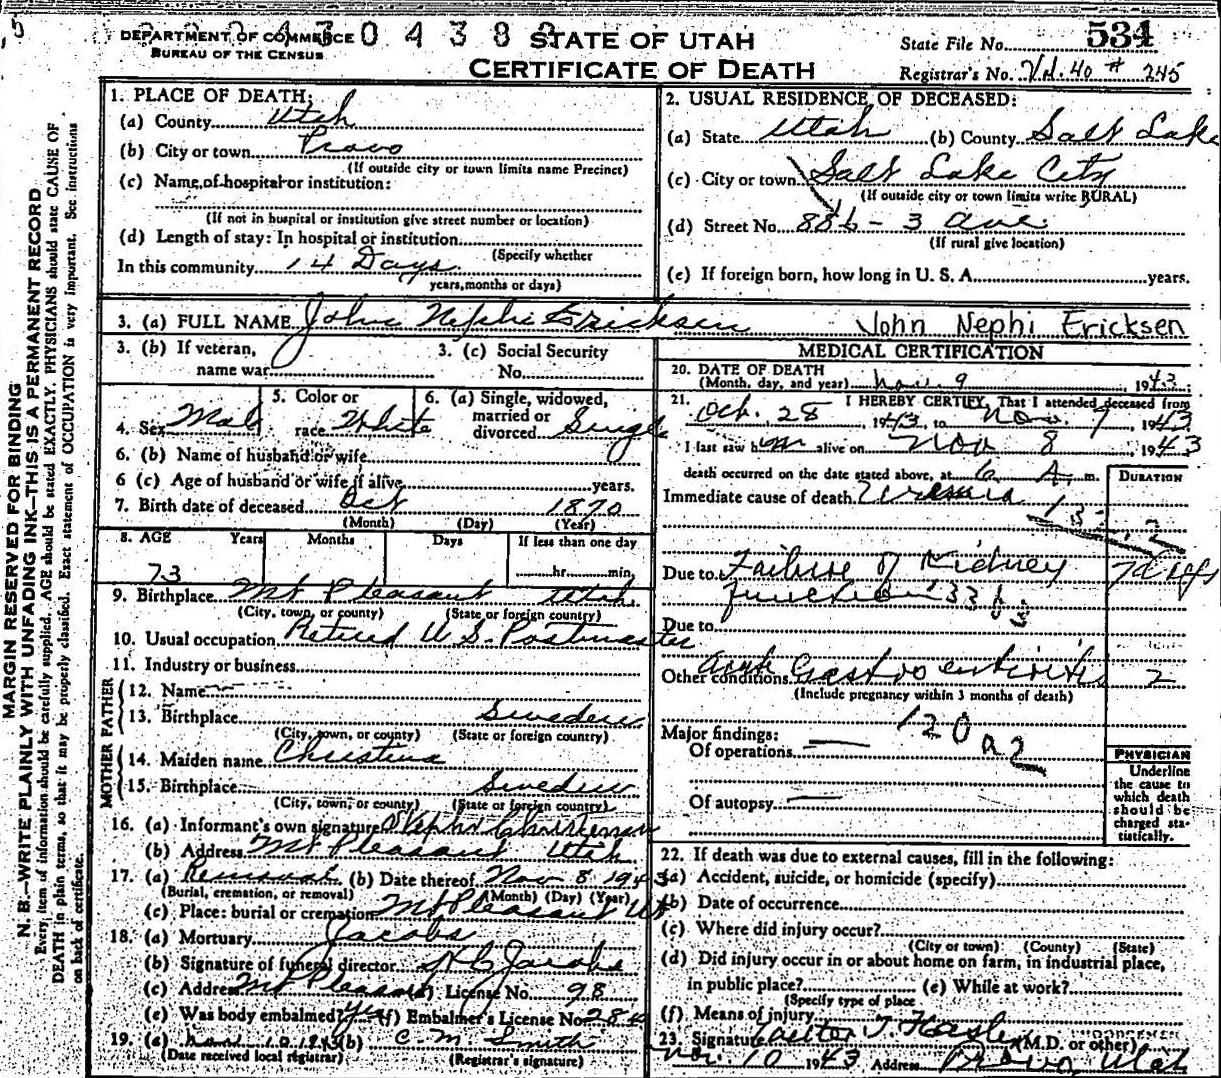 DEPARTMENT OF COMMERCE
BUREAU OF THE CENSUS
STATE OF UTAH
CERTIFICATE OF DEATH
State File No. 534
Registrar's No. Vol. 40 # 245
MARGIN RESERVED FOR BINDING
N. B.—WRITE PLAINLY WITH UNFADING INK—THIS IS A PERMANENT RECORD
Every item of information should be carefully supplied. AGE should be stated EXACTLY. PHYSICIANS should state CAUSE OF
DEATH in plain terms, so that it may be properly classified. Exact statement of OCCUPATION is very important. See instructions
on back of certificate.
1. PLACE OF DEATH:
(a) County Utah
(b) City or town Provo
(If outside city or town limits name Precinct)
(c) Name of hospital or institution:
(If not in hospital or institution give street number or location)
(d) Length of stay: In hospital or institution
(Specify whether
In this community 14 Days
years, months or days)
2. USUAL RESIDENCE OF DECEASED:
(a) State Utah (b) County Salt Lake
(c) City or town Salt Lake City
(If outside city or town limits write RURAL)
(d) Street No. 886 - 3 Ave
(If rural give location)
(e) If foreign born, how long in U. S. A. years.
3. (a) FULL NAME John Nephi Ericksen John Nephi Ericksen
3. (b) If veteran,
name war
3. (c) Social Security
No.
4. Sex Male
5. Color or
race White
6. (a) Single, widowed,
married or
divorced Single
6. (b) Name of husband or wife
6 (c) Age of husband or wife if alive years.
7. Birth date of deceased Oct 1870
(Month) (Day) (Year)
8. AGE Years Months Days If less than one day
73 hr. min.
9. Birthplace Mt Pleasant Utah
(City, town, or county) (State or foreign country)
10. Usual occupation Retired U.S. Postmaster
11. Industry or business
FATHER
12. Name
13. Birthplace Sweden
(City, town, or county) (State or foreign country)
MOTHER
14. Maiden name Christina
15. Birthplace Sweden
(City, town, or county) (State or foreign country)
16. (a) Informant's own signature
(b) Address Mt Pleasant Utah
17. (a) Removal (b) Date thereof Nov 8 1943
(Burial, cremation, or removal) (Month) (Day) (Year)
(c) Place: burial or cremation Mt Pleasant Ut
18. (a) Mortuary Jacobs
(b) Signature of funeral director Jacobs
(c) Address Mt Pleasant License No. 98
(e) Was body embalmed? yes (f) Embalmer's License No. 284
19. (a) Nov. 10 1943 (b) C. M. Smith
(Date received local registrar) (Registrar's signature)
MEDICAL CERTIFICATION
20. DATE OF DEATH
(Month, day, and year) Nov. 9, 1943
21. I HEREBY CERTIFY, That I attended deceased from
Oct. 28, 1943, to Nov. 9, 1943
I last saw him alive on Nov 8 1943
death occurred on the date stated above, at 6 A. m.
DURATION
Immediate cause of death Uremia
Due to Failure of Kidney 7 days
function 133 b
Due to
Other conditions acute Gastro enteritis 2
(Include pregnancy within 3 months of death)
Major findings: 120 a2
Of operations
Of autopsy
PHYSICIAN
Underline
the cause to
which death
should be
charged sta-
tistically.
22. If death was due to external causes, fill in the following:
(a) Accident, suicide, or homicide (specify)
(b) Date of occurrence
(c) Where did injury occur?
(City or town) (County) (State)
(d) Did injury occur in or about home on farm, in industrial place,
in public place? (e) While at work?
(Specify type of place
(f) Means of injury
23. Signature Walter T Hasler (M.D. or other)
Nov. 10 1943 Address Provo, Utah